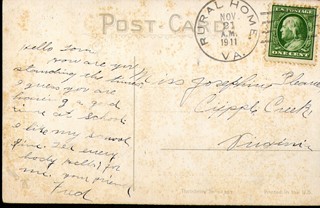 POST CARD
RURAL HOME,
NOV
21
A.M.
1911
VA.
ONE CENT
Hello
how are you
standing the
I guess you are
having a good
time at school
I like my school
fine. Tell every
body hello for
me. your friend
Fred
Miss Josephine
Cripple Creek
Virginia